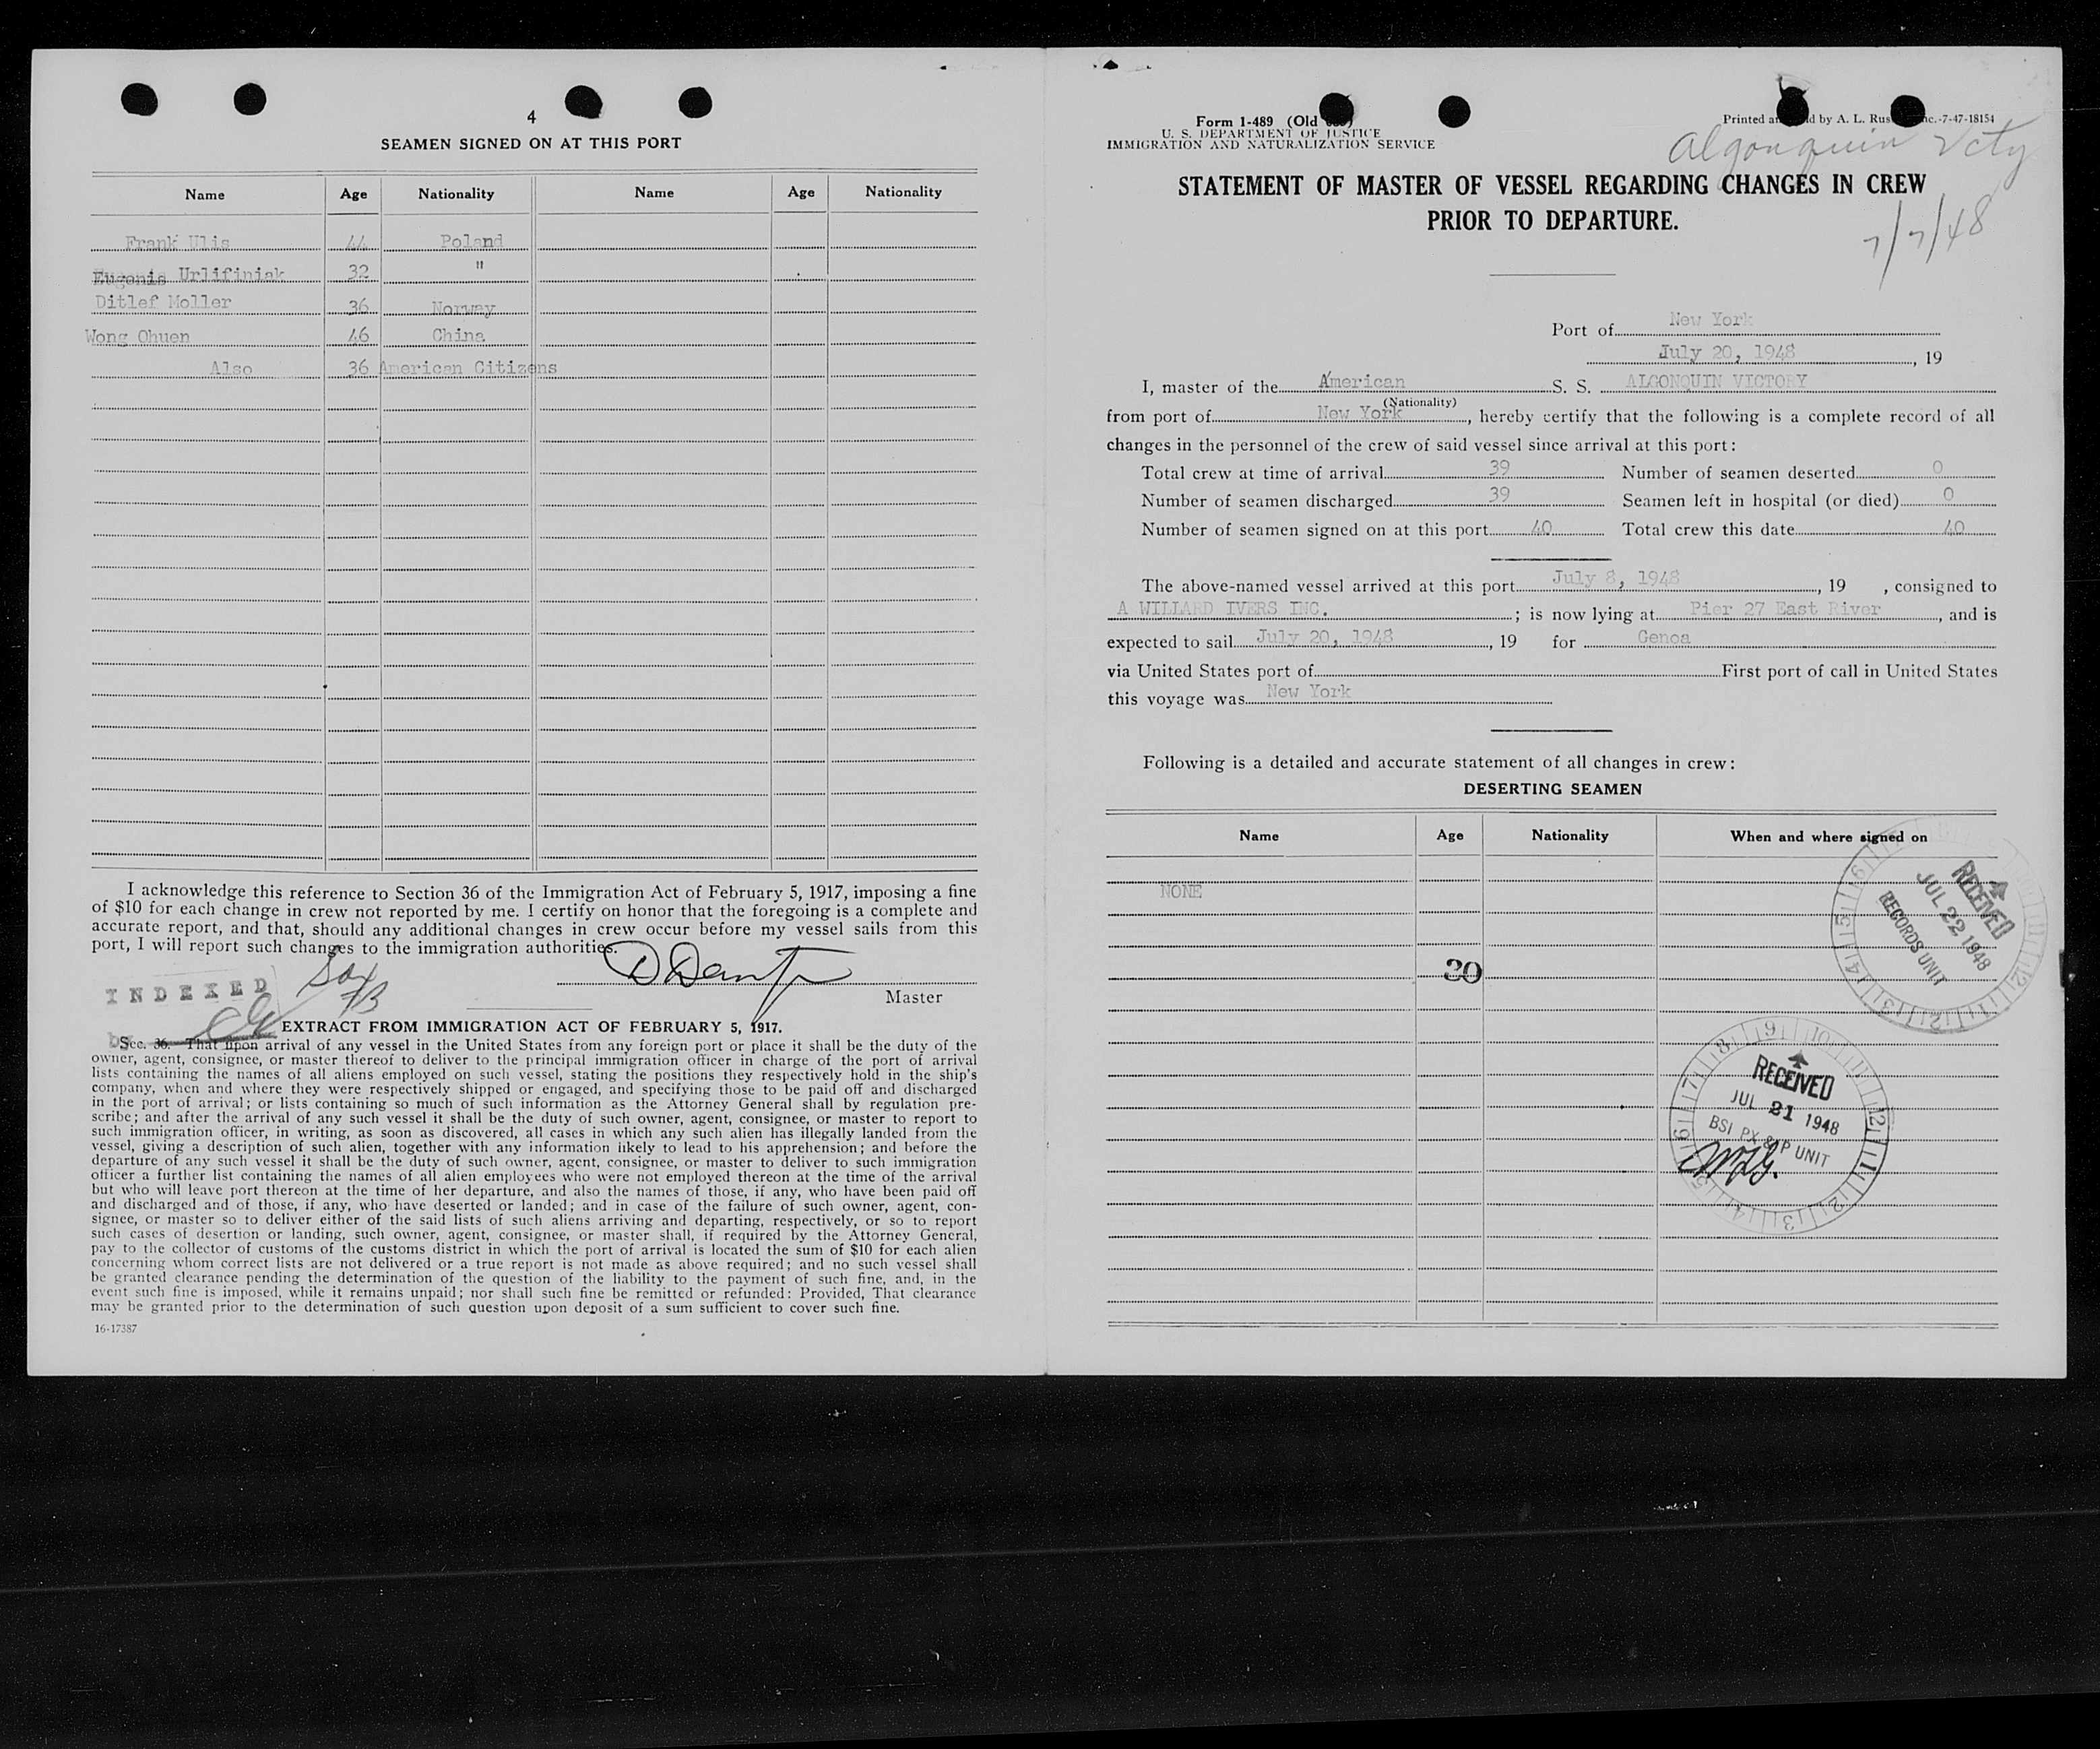 4
SEAMEN SIGNED ON AT THIS PORT
Name Age Nationality Name Age Nationality
Frank Ulis 44 Poland
Eugenis Urlifiniak 32 "
Ditlef Moller 36 Norway
Wong Ohuen 46 China
Also 36 American Citizens
I acknowledge this reference to Section 36 of the Immigration Act of February 5, 1917, imposing a fine
of $10 for each change in crew not reported by me. I certify on honor that the foregoing is a complete and
accurate report, and that, should any additional changes in crew occur before my vessel sails from this
port, I will report such changes to the immigration authorities.
INDEXED
Master
EXTRACT FROM IMMIGRATION ACT OF FEBRUARY 5, 1917.
Sec. 36. That upon arrival of any vessel in the United States from any foreign port or place it shall be the duty of the
owner, agent, consignee, or master thereof to deliver to the principal immigration officer in charge of the port of arrival
lists containing the names of all aliens employed on such vessel, stating the positions they respectively hold in the ship's
company, when and where they were respectively shipped or engaged, and specifying those to be paid off and discharged
in the port of arrival; or lists containing so much of such information as the Attorney General shall by regulation pre-
scribe; and after the arrival of any such vessel it shall be the duty of such owner, agent, consignee, or master to report to
such immigration officer, in writing, as soon as discovered, all cases in which any such alien has illegally landed from the
vessel, giving a description of such alien, together with any information likely to lead to his apprehension; and before the
departure of any such vessel it shall be the duty of such owner, agent, consignee, or master to deliver to such immigration
officer a further list containing the names of all alien employees who were not employed thereon at the time of the arrival
but who will leave port thereon at the time of her departure, and also the names of those, if any, who have been paid off
and discharged and of those, if any, who have deserted or landed; and in case of the failure of such owner, agent, con-
signee, or master so to deliver either of the said lists of such aliens arriving and departing, respectively, or so to report
such cases of desertion or landing, such owner, agent, consignee, or master shall, if required by the Attorney General,
pay to the collector of customs of the customs district in which the port of arrival is located the sum of $10 for each alien
concerning whom correct lists are not delivered or a true report is not made as above required; and no such vessel shall
be granted clearance pending the determination of the question of the liability to the payment of such fine, and, in the
event such fine is imposed, while it remains unpaid; nor shall such fine be remitted or refunded: Provided, That clearance
may be granted prior to the determination of such question upon deposit of a sum sufficient to cover such fine.
16-17387
Form 1-489 (Old
U. S. DEPARTMENT OF JUSTICE
IMMIGRATION AND NATURALIZATION SERVICE
Printed by A. L. Rus -7-47-18154
Algonquin Vcty
7/7/48
STATEMENT OF MASTER OF VESSEL REGARDING CHANGES IN CREW
PRIOR TO DEPARTURE.
Port of New York
July 20, 1948, 19
I, master of the American S. S. ALGONQUIN VICTORY
(Nationality)
from port of New York, hereby certify that the following is a complete record of all
changes in the personnel of the crew of said vessel since arrival at this port:
Total crew at time of arrival 39 Number of seamen deserted 0
Number of seamen discharged 39 Seamen left in hospital (or died) 0
Number of seamen signed on at this port 40 Total crew this date 40
The above-named vessel arrived at this port July 8, 1948, 19 , consigned to
A WILLARD IVERS INC. ; is now lying at Pier 27 East River, and is
expected to sail July 20, 1948, 19 for Genoa
via United States port of First port of call in United States
this voyage was New York
Following is a detailed and accurate statement of all changes in crew:
DESERTING SEAMEN
Name Age Nationality When and where signed on
NONE
RECEIVED
JUL 22 1948
RECORDS UNIT
20
RECEIVED
JUL 21 1948
BSI PX & P UNIT